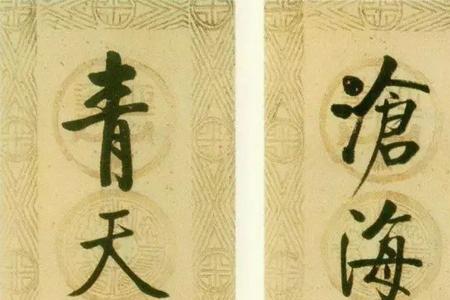 滄海
青天